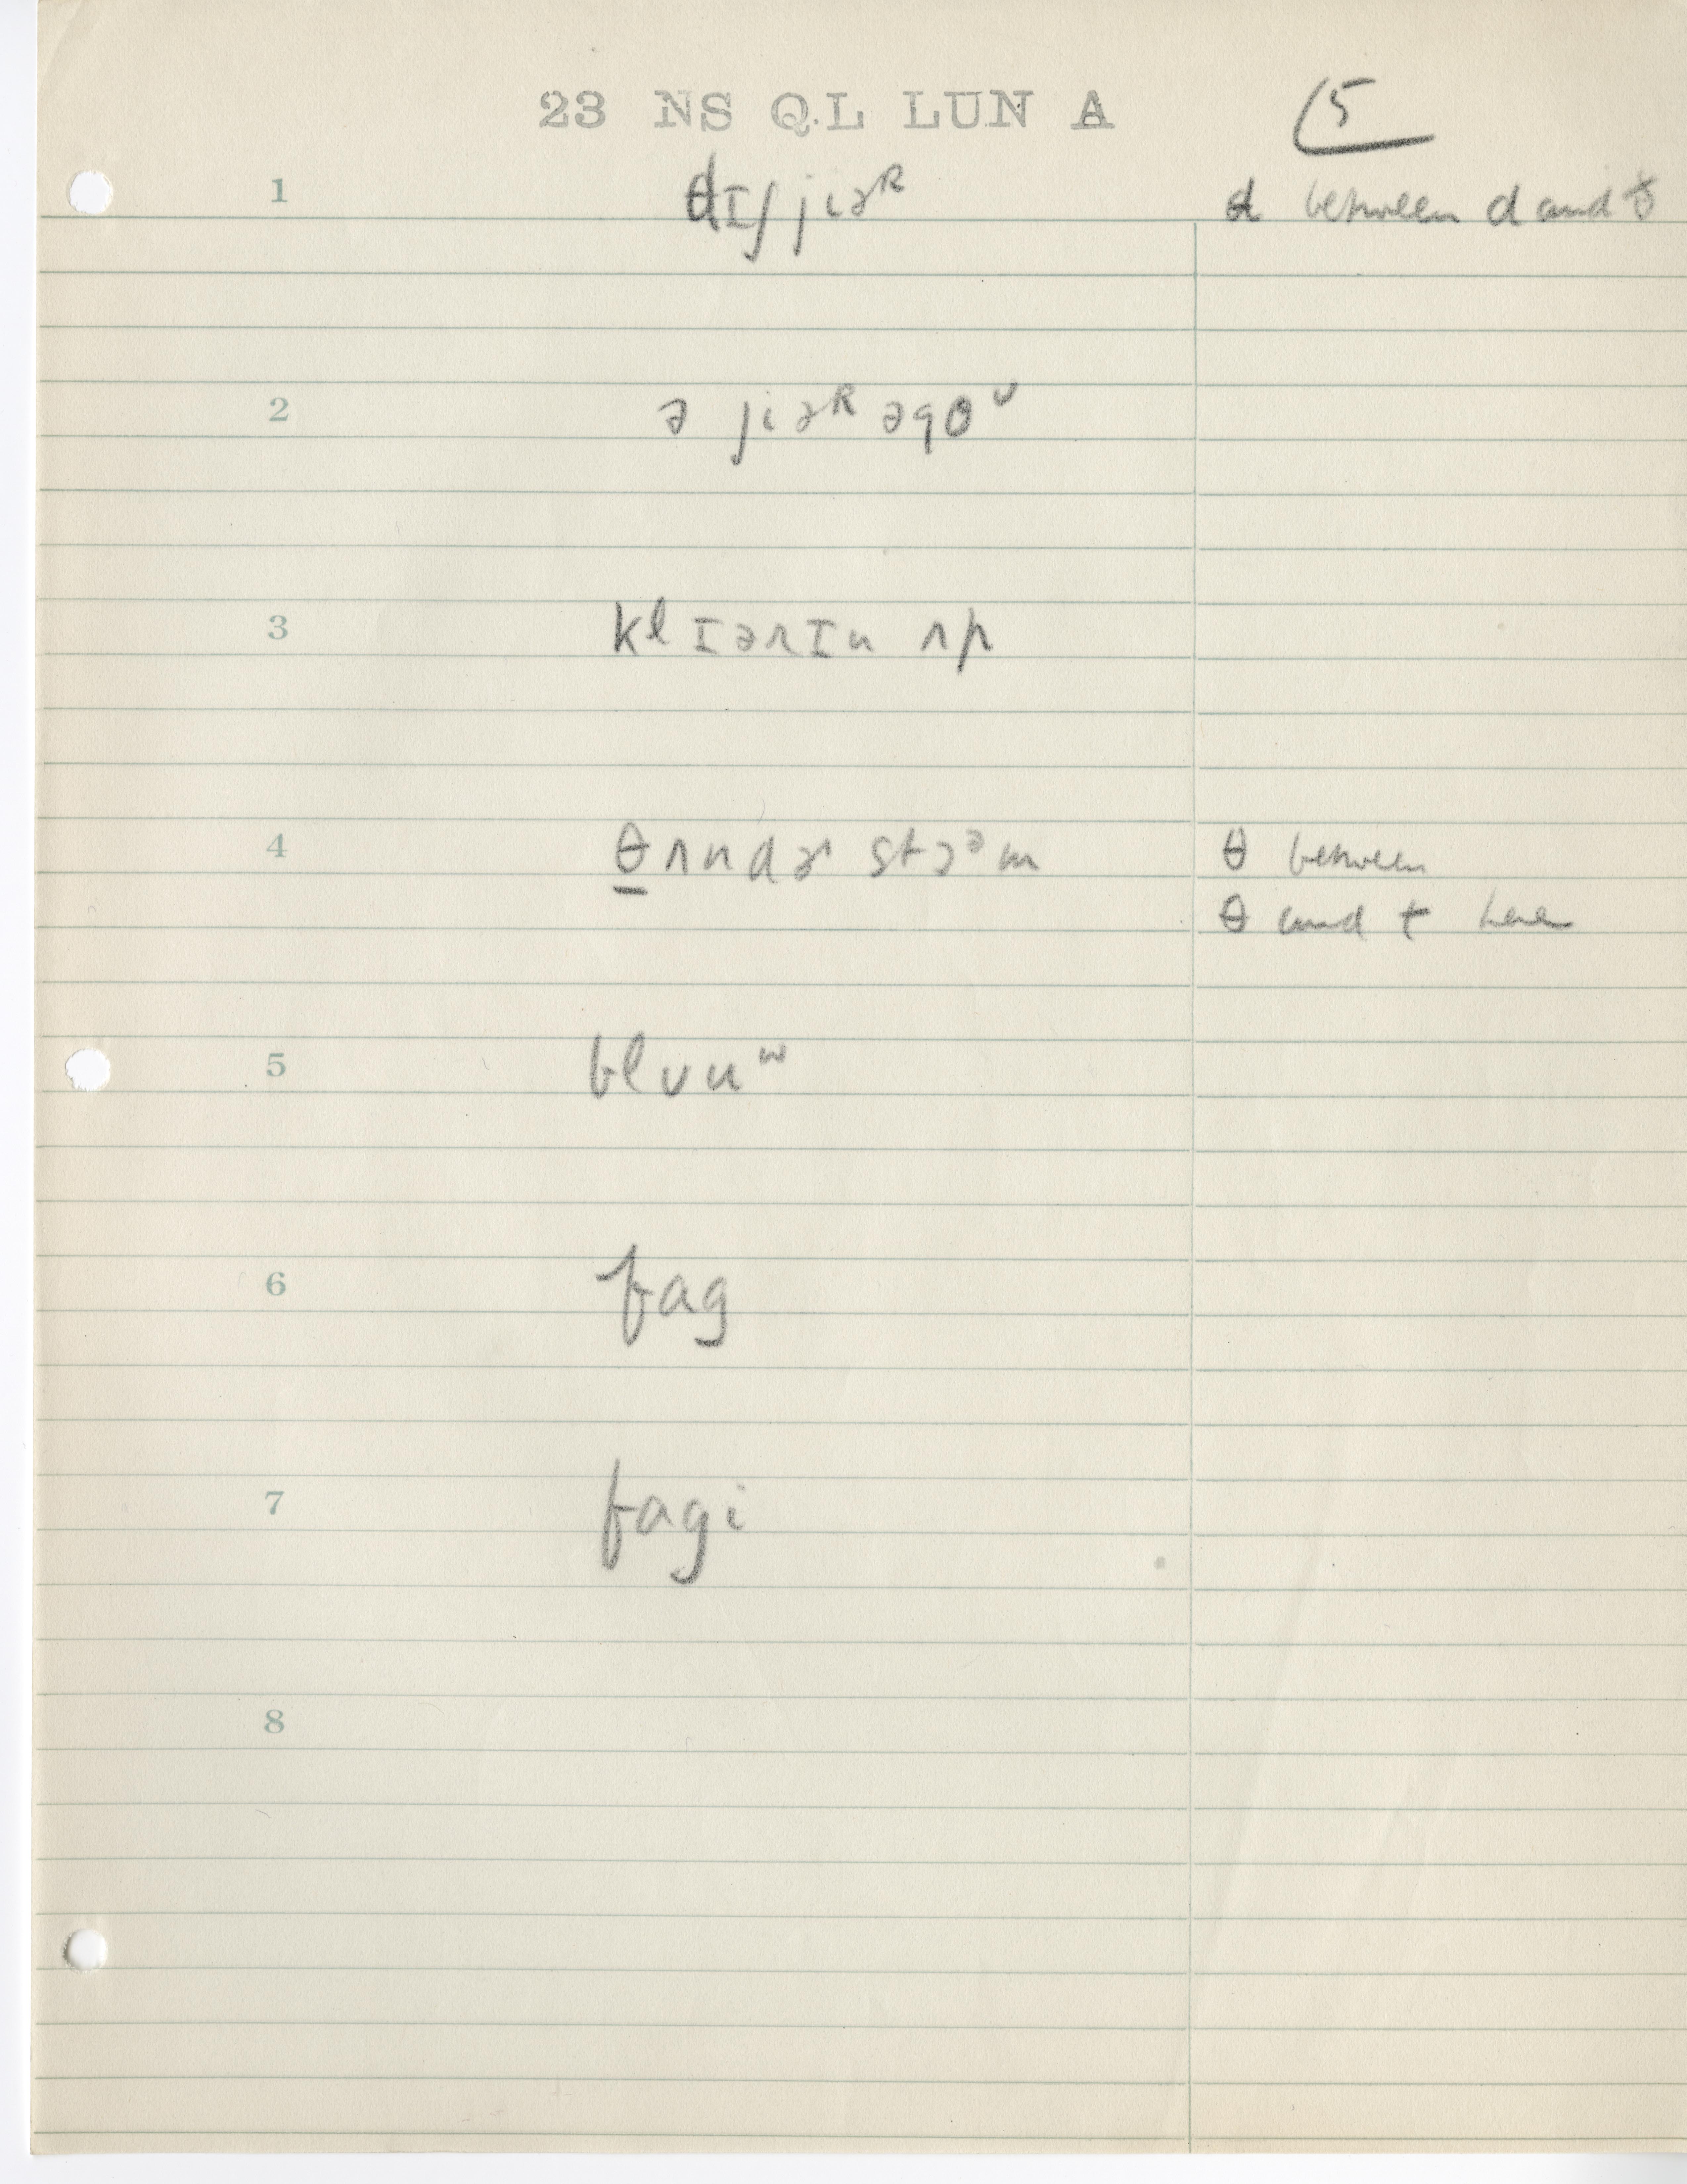 23 NS QL LUN A
5
1 đɪʃ jiɚᴿ đ between d and ð
2 ə jiɚᴿ əgoᵁ
3 klɪərɪn ʌp
4 θ̠ʌndɚ stɔᵊm θ between
θ and t here
5 bluuʷ
6 fag
7 fagi
8